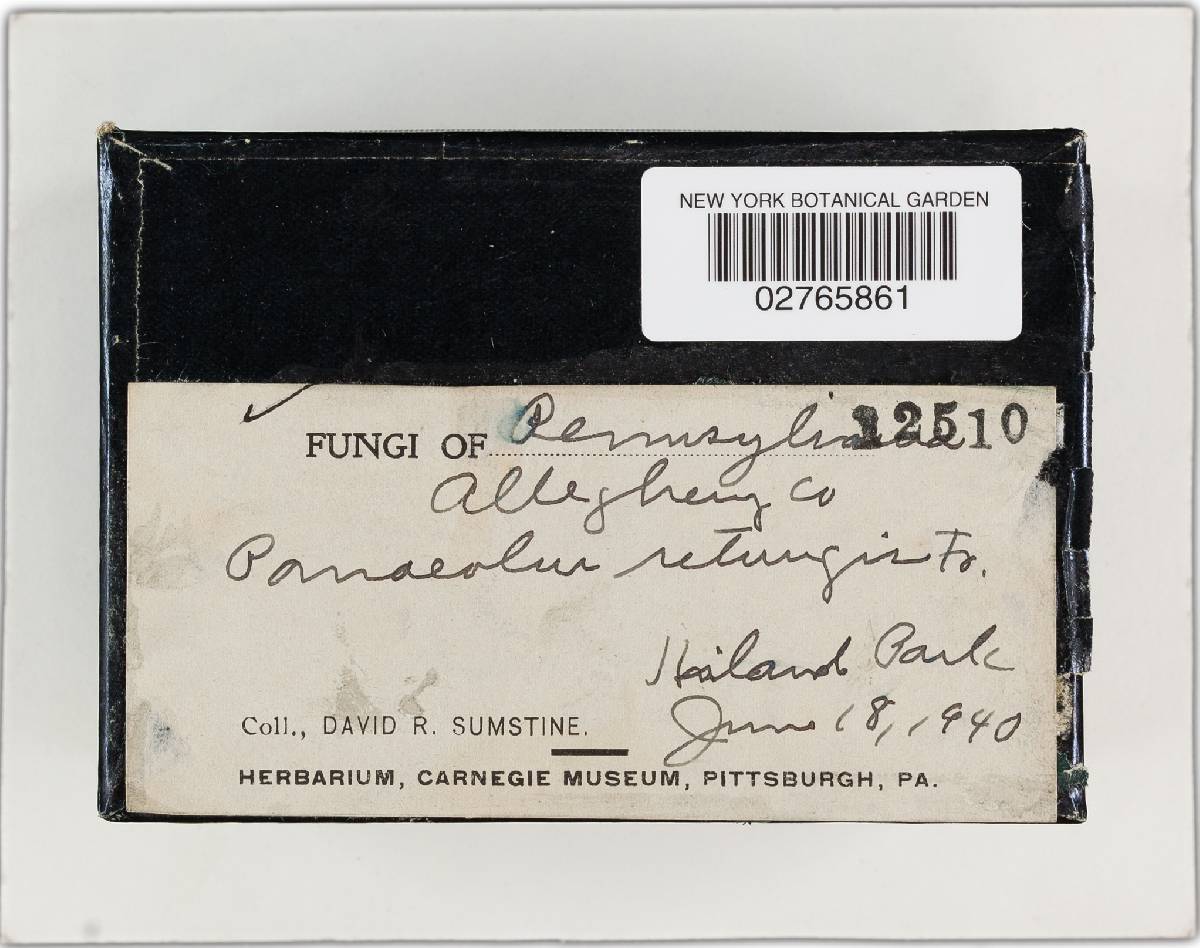 NEW YORK BOTANICAL GARDEN
02765861
12510
FUNGI OF Pennsylvania
Allegheny Co
Panaeolus retirugis Fr.
Hiland Park
June 18, 1940
Coll., DAVID R. SUMSTINE.
HERBARIUM, CARNEGIE MUSEUM, PITTSBURGH, PA.